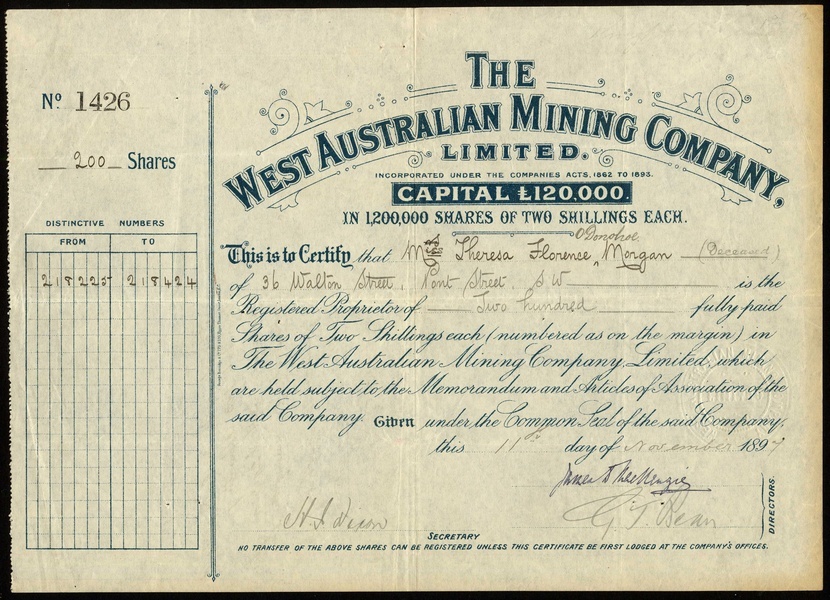 Nº 1426
200 Shares
DISTINCTIVE NUMBERS
FROM TO
218225 218424
THE
WEST AUSTRALIAN MINING COMPANY,
LIMITED.
INCORPORATED UNDER THE COMPANIES ACTS, 1862 TO 1893.
CAPITAL £120,000.
IN 1,200,000 SHARES OF TWO SHILLINGS EACH.
O'Donohoe
This is to Certify that Theresa Florence Morgan (Deceased)
of 36 Walton Street, Pont Street. S W is the
Registered Proprietor of Two hundred fully paid
Shares of Two Shillings each (numbered as on the margin) in
The West Australian Mining Company, Limited, which
are held subject to the Memorandum and Articles of Association of the
said Company. Given under the Common Seal of the said Company,
this 11th day of November 1897
James D MacKenzie
G. T. Bean
DIRECTORS.
SECRETARY
NO TRANSFER OF THE ABOVE SHARES CAN BE REGISTERED UNLESS THIS CERTIFICATE BE FIRST LODGED AT THE COMPANY'S OFFICES.